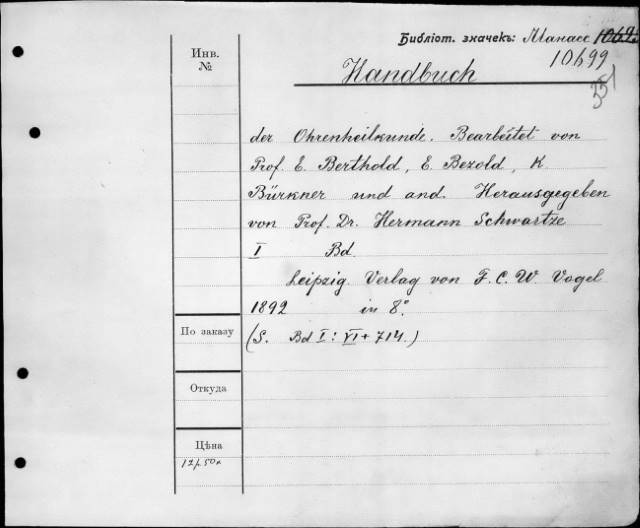 Библіот. значекъ: Манасс 1062.
10699
Инв.
№
Handbuch
der Ohrenheilkunde. Bearbeitet von
Prof. E. Berthold, E. Bezold, K
Bürkner und and. Herausgegeben
von Prof. Dr. Hermann Schwartze
I Bd.
Leipzig. Verlag von F. C. W. Vogel
1892 in 8°.
По заказу
(S. Bd I: VI + 714.)
Откуда
Цѣна